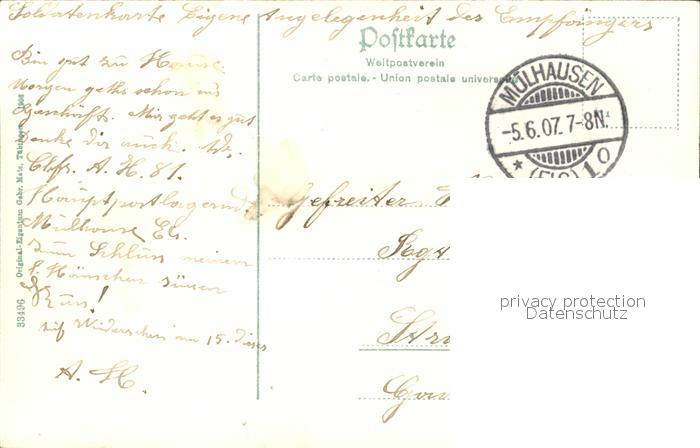 Soldatenkarte Eigene Angelegenheit des Empfängers
Postkarte
Weltpostverein
Carte postale. - Union postale universelle
MÜLHAUSEN
-5.6.07. 7-8N.
* (ELS) 1 o
Bin gut zu Hause
Morgen geht's schon ins
Mir geht es gut
denke dir auch.
A. H. 81.
Hauptpostlagernd
Mülhouse Els.
zum Schluss meinem
l. Hänschen süssen
Auf Wiedersehen am 15. dieses
A. H.
Gefreiter
33496 Original-Eigentum Gebr. Metz, Tübingen 1906
privacy protection
Datenschutz